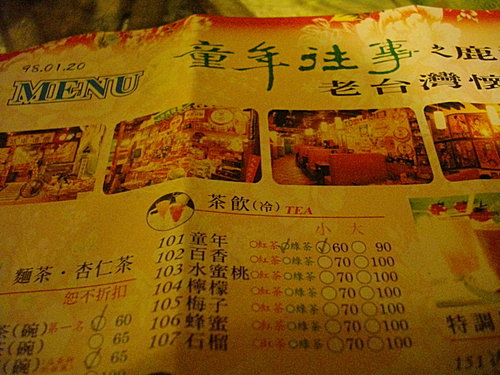 童年往事之鹿
98.01.20
MENU
老台灣懷
茶飲(冷) TEA
小 大
101 童年 紅茶 綠茶 60 90
102 百香 紅茶 綠茶 70 100
103 水蜜桃 紅茶 綠茶 70 100
104 檸檬 紅茶 綠茶 70 100
105 梅子 紅茶 綠茶 70 100
106 蜂蜜 紅茶 綠茶 70 100
107 石榴 紅茶 綠茶 70 100
麵茶·杏仁茶
恕不折扣
茶(碗) 第一名 60
茶(碗) 65
(碗) 65
特調
151